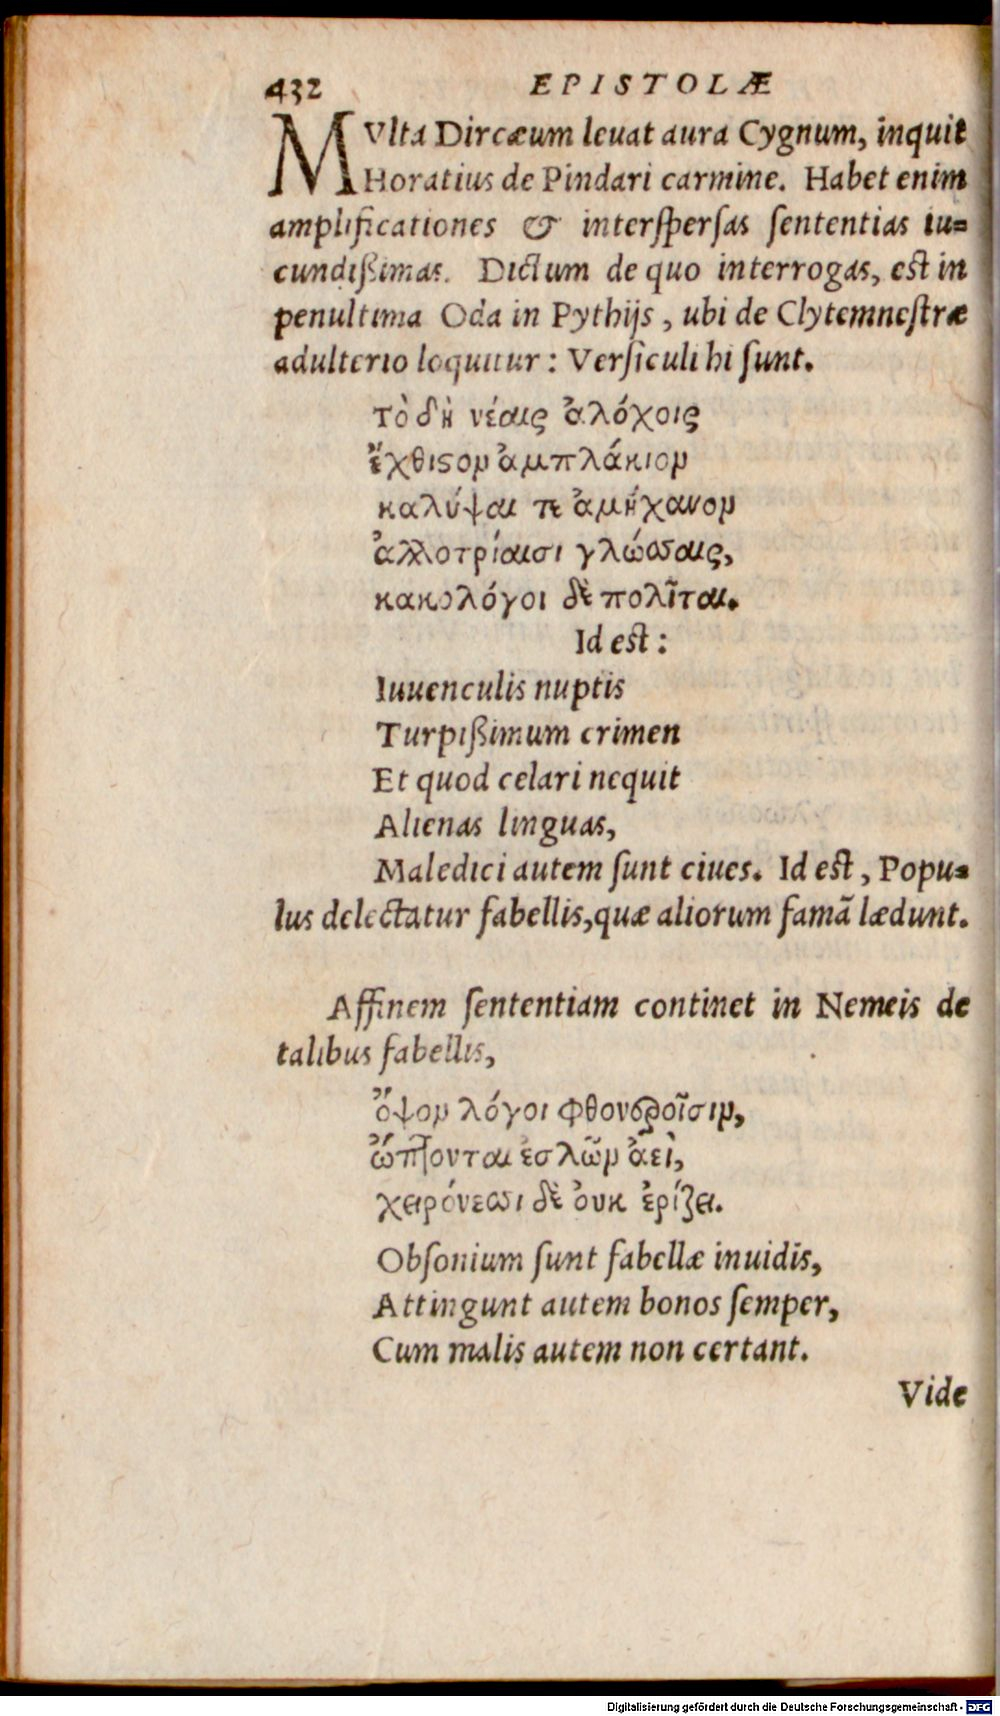 432 EPISTOLÆ
MVlta Dircæum leuat aura Cygnum, inquit
Horatius de Pindari carmine. Habet enim
amplificationes & interſperſas ſententias iu=
cundiſsimas. Dictum de quo interrogas, eſt in
penultima Oda in Pythijs, ubi de Clytemneſtræ
adulterio loquitur: Verſiculi hi ſunt.
τὸ δὴ νέαις ἀλόχοις
ἔχθιϛον ἀμπλάκιον
καλύψαι τε ἀμήχανον
ἀλλοτρίαισι γλώσσαις,
κακολόγοι δὲ πολῖται.
Id eſt:
Iuuenculis nuptis
Turpiſsimum crimen
Et quod celari nequit
Alienas linguas,
Maledici autem ſunt ciues. Id eſt, Popu=
lus delectatur fabellis, quæ aliorum famã lædunt.
Affinem ſententiam continet in Nemeis de
talibus fabellis,
ὄψον λόγοι φθονεροῖσιν,
ὥπτονται ἐσλῶν ἀεὶ,
χειρόνεσσι δὲ ὀυκ ἐρίζει.
Obſonium ſunt fabellæ inuidis,
Attingunt autem bonos ſemper,
Cum malis autem non certant.
Vide
Digitalisierung gefördert durch die Deutsche Forschungsgemeinschaft - DFG